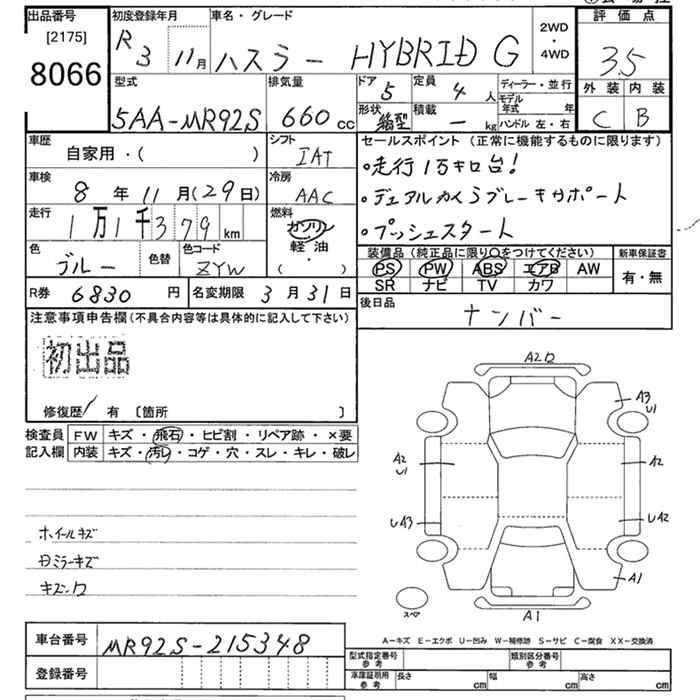 出品番号 初度登録年月 車名・グレード 評価点
[2175] R3 11月 ハスラー HYBRID G 2WD・4WD 3.5
8066
型式 排気量 ドア 5 定員 4人 ディーラー・並行 外装 内装
5AA-MR92S 660cc 形状 箱型 積載 ー kg モデル年式 年 C B
ハンドル 左・右
車歴 シフト セールスポイント(正常に機能するものに限ります)
自家用・( ) IAT ・走行1万キロ台!
車検 冷房
8年11月(29日) AAC ・デュアルカメラブレーキサポート
走行 燃料
1万1千379km ガソリン ・プッシュスタート
色 色替 色コード 軽油
ブルー ZYW ・( )
装備品(純正品に限り○をつけてください) 新車保証書
PS PW ABS エアB AW 有・無
SR ナビ TV カワ
R券 6830円 名変期限 3月31日 後日品
ナンバー
注意事項申告欄(不具合内容等は具体的に記入して下さい)
初出品
修復歴 有 〔箇所 〕
検査員 FW キズ・飛石・ヒビ割・リペア跡・×要
記入欄 内装 キズ・汚レ・コゲ・穴・スレ・キレ・破レ
A3
U1
A2
U1
A2
UA3
UA2
A1
A1
スペア
ホイールキズ
A-キズ E-エクボ U-凹み W-補修跡 S-サビ C-腐食 XX-交換済
車台番号 MR92S-215348
型式指定番号 参考 類別区分番号 参考
登録番号
車庫証明用 参考 長さ cm 幅 cm 高さ cm